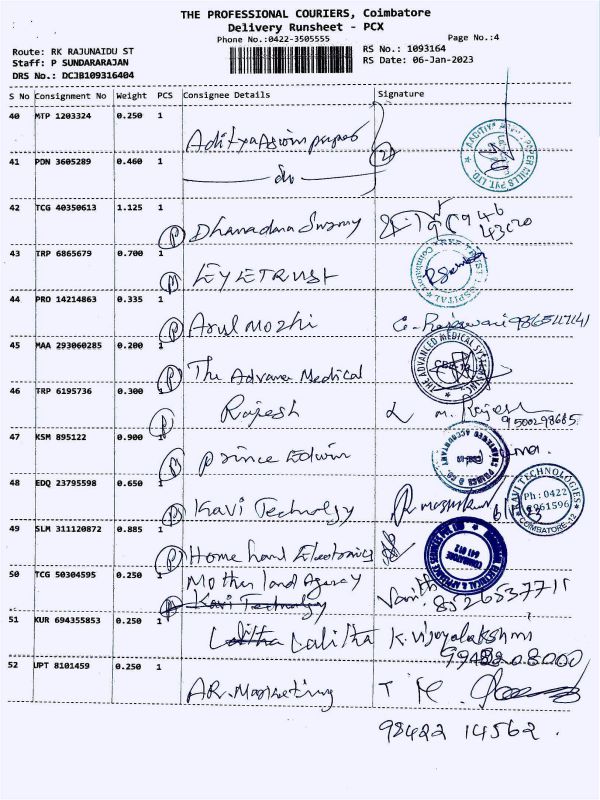 THE PROFESSIONAL COURIERS, Coimbatore
Delivery Runsheet - PCX
Phone No.:0422-3505555
Page No.:4
Route: RK RAJUNAIDU ST
RS No.: 1093164
Staff: P SUNDARARAJAN
RS Date: 06-Jan-2023
DRS No.: DCJB109316404
S No Consignment No Weight PCS Consignee Details Signature
40 MTP 1203324 0.250 1
Aditya Aswin papers
41 PDN 3605289 0.460 1
do
2
42 TCG 40350613 1.125 1
P Dhanadana Swamy
43 TRP 6865679 0.700 1
P EYETRUST
44 PRO 14214863 0.335 1
P Arul Mozhi
45 MAA 293060285 0.200 1
THE ADVANCED MEDICAL
P The Advance Medical
46 TRP 6195736 0.300 1
P Rajesh M. Rajesh
9500298685.
47 KSM 895122 0.900 1
P prince Edwin
48 EDQ 23795598 0.650 1
KAVI TECHNOLOGIES
Ph : 0422
COIMBATORE-12
P Kavi Technolgy
49 SLM 311120872 0.885 1
P Home hand Electronics
COIMBATORE
641 012
50 TCG 50304595 0.250 1
Mother land Agency
Kavi Technology
8526537711
51 KUR 694355853 0.250 1
Lalitha K. Vijayalakshmi
52 UPT 8101459 0.250 1
AR. Marketing
98422 14562.